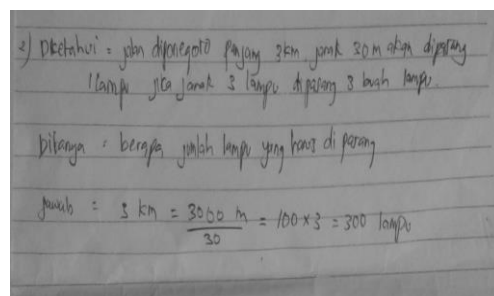 2) Diketahui = jalan diponegoro panjang 3 km. jarak 30 m akan dipasang
1 lampu jika jarak 3 lampu dipasang 3 buah lampu.
Ditanya = berapa jumlah lampu yang harus di pasang
Jawab = 3 km = 3000 m / 30 = 100 x 3 = 300 lampu